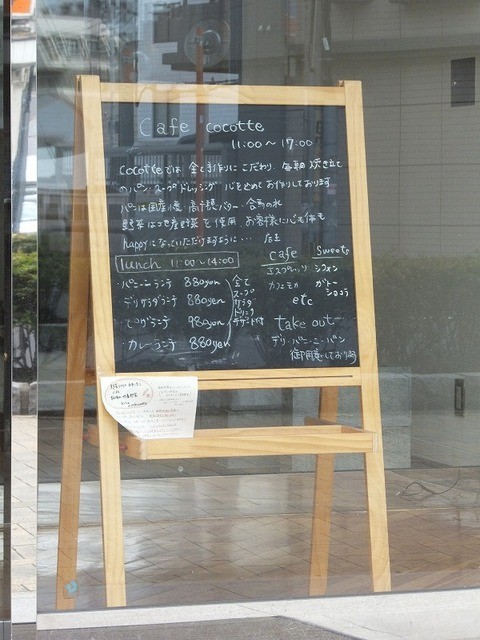 Cafe cocotte
11:00〜17:00
cocotteでは 全て手作りに こだわり 毎朝 焼き立て
のパン・スープ ドレッシング 心を込めて お作りしております
パンは国産小麦・高千穂バター・
野菜は地産野菜を使用 お客様に心も体も
happyになっていただけますように… 店主
lunch 11:00〜14:00
・パニーニランチ 880yen
・デリサラダランチ 880yen
・ピザランチ 980yen
・カレーランチ 880yen
全て
スープ
サラダ
ドリンク
デザート付
cafe
エスプレッソ
カフェモカ
Sweets
シフォン
ガトー
ショコラ
etc
take out
デリ・パニーニ・パン
御用意しております